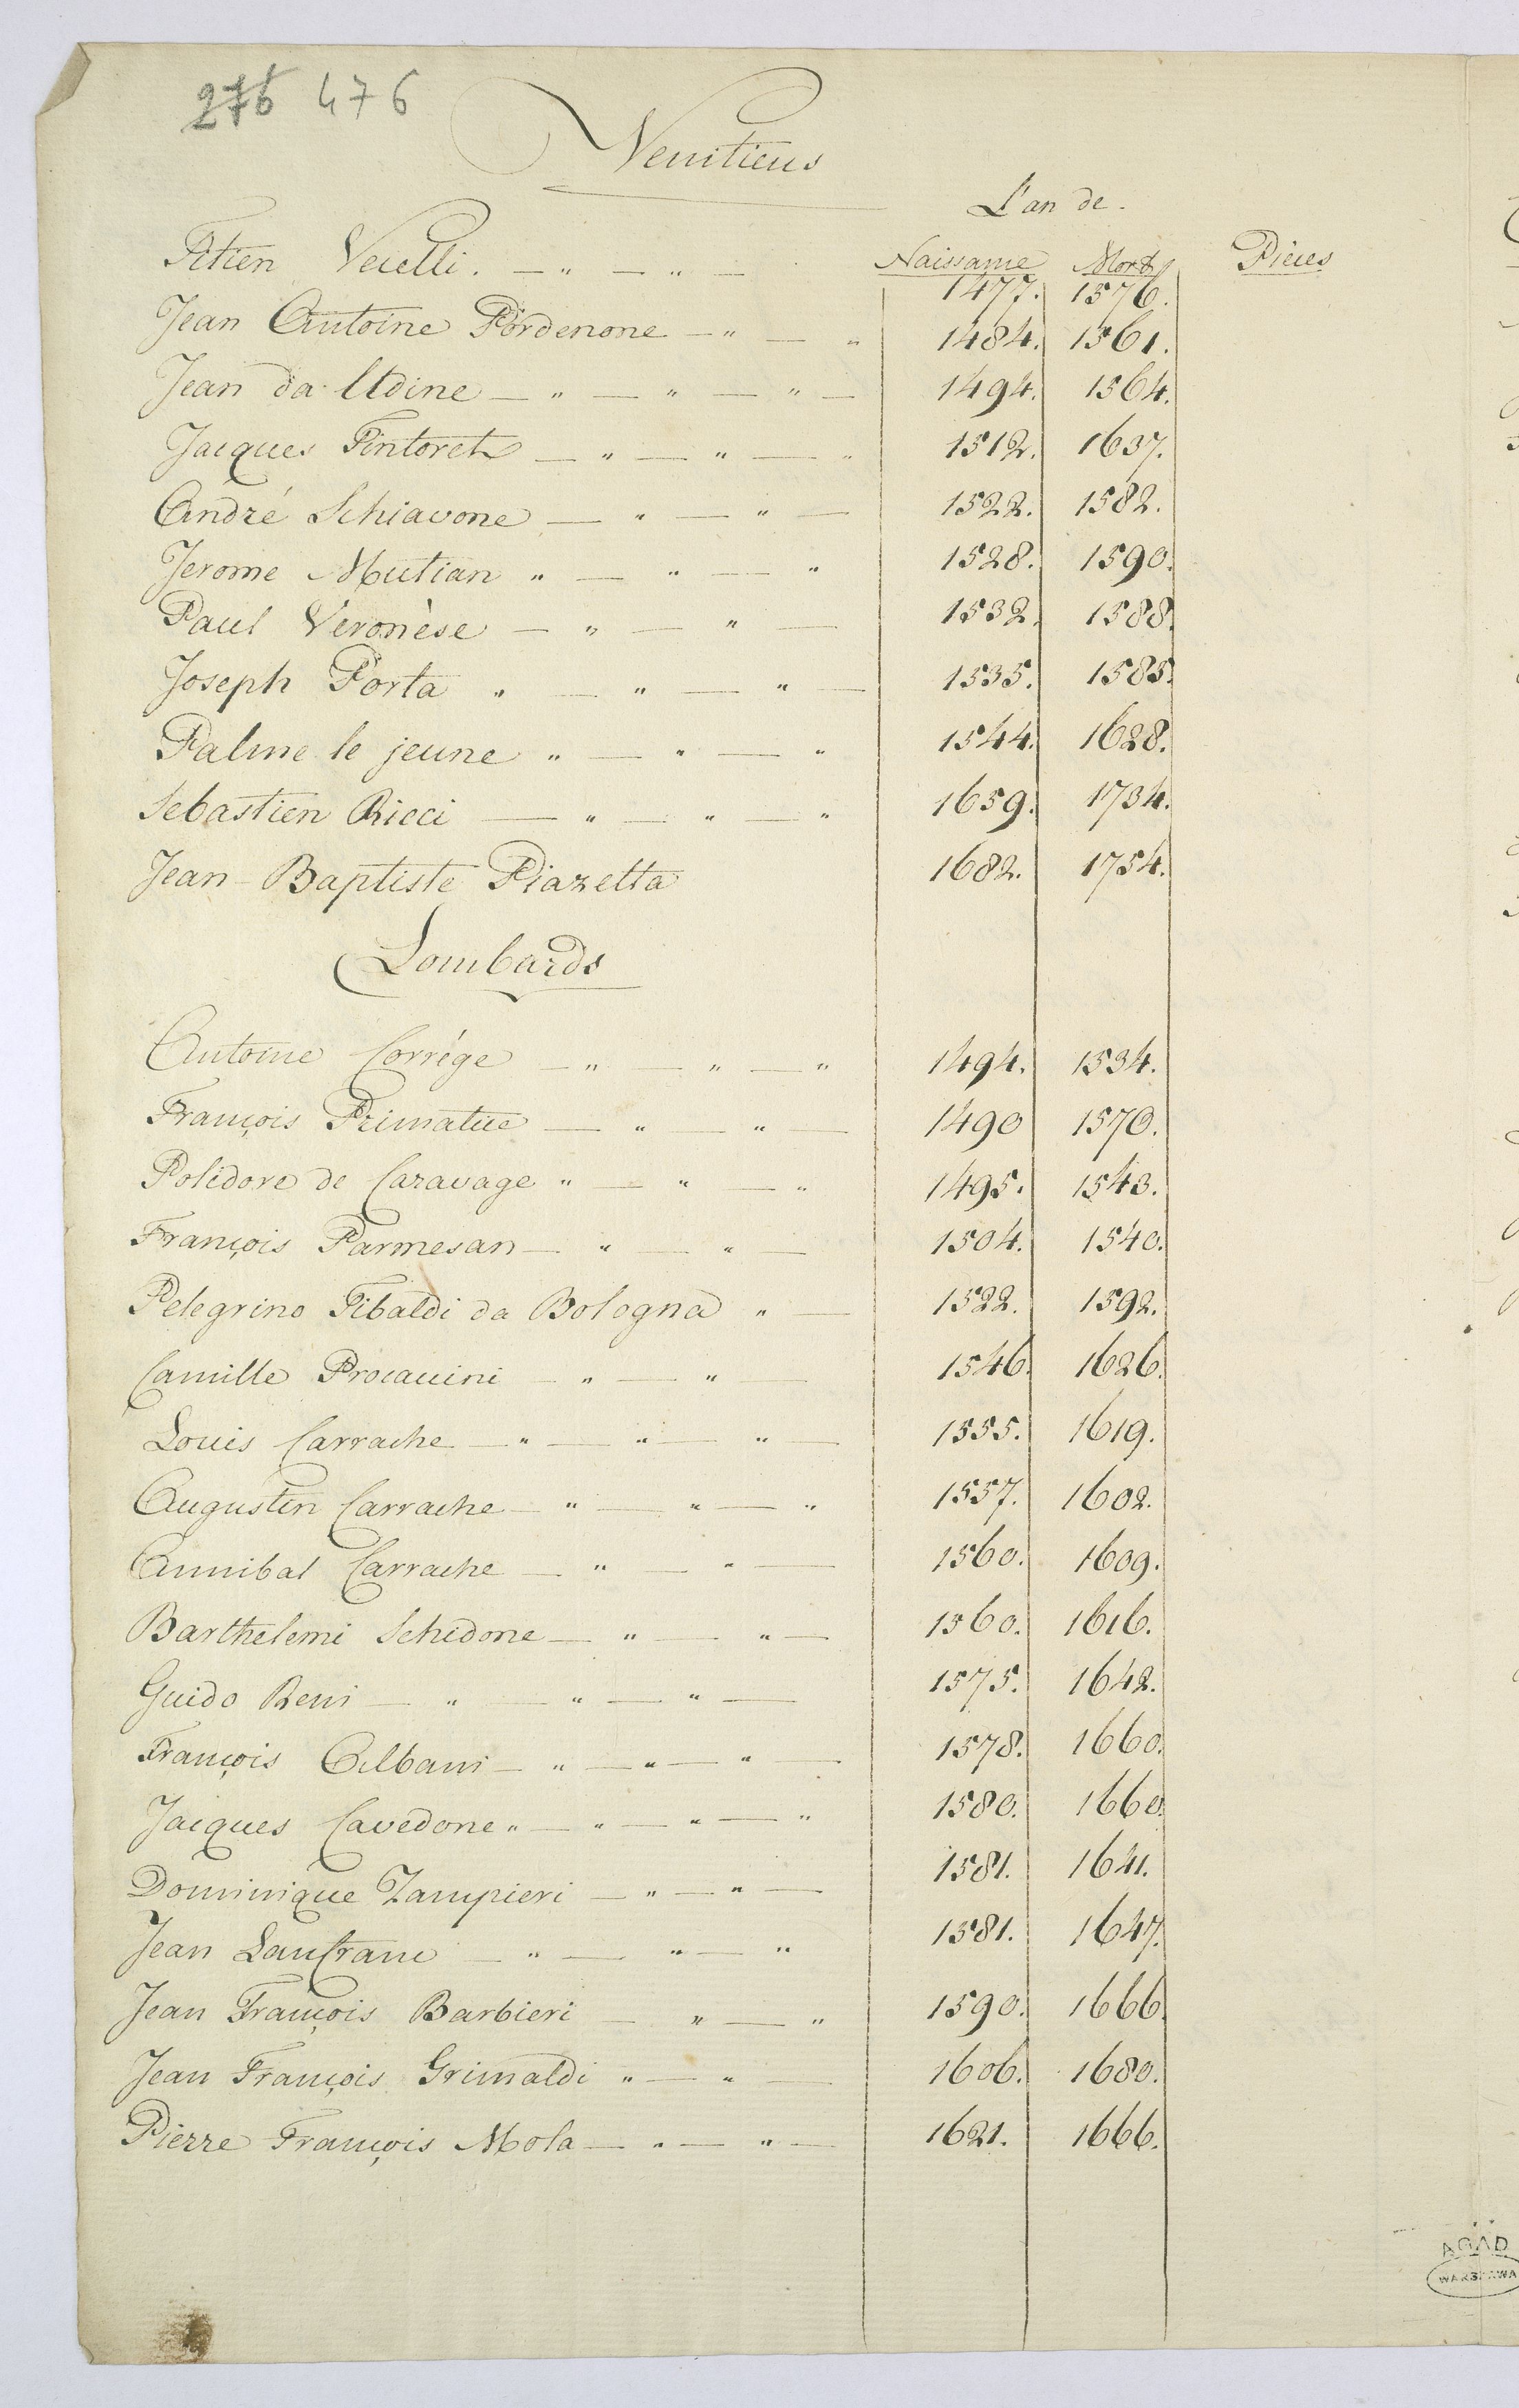 276 476
Venitiens
L'an de.
Titien Vecelli. — " — " — Naissance Mort Pieces
1477. 1576.
Jean Antoine Pordenone — " — " 1484. 1561.
Jean da Udine — " — " — " — 1494. 1564.
Jacques Tintoret — " — " — " 1512. 1637.
André Schiavone — " — " — 1522. 1582.
Jerome Mutian " — " — " 1528. 1590.
Paul Veronèse — " — " — 1532. 1588.
Joseph Porta " — " — " — 1535. 1585.
Palme le jeune " — " — " 1544. 1628.
Sebastien Ricci — " — " — " 1659. 1734.
Jean-Baptiste Piazetta 1682. 1754.
Lombards
Antoine Corrége — " — " — " 1494. 1534.
François Primatice — " — " — 1490 1570.
Polidore de Caravage " — " — " 1495. 1543.
François Parmesan — " — " — 1504. 1540.
Pelegrino Tibaldi da Bologna " — 1522. 1592.
Camille Procaccini — " — " — 1546. 1626.
Louis Carrache — " — " — " — 1555. 1619.
Augustin Carrache — " — " — " 1557. 1602.
Annibal Carrache — " — " — 1560. 1609.
Barthelemi Schidone — " — " — 1560. 1616.
Guido Reni — " — " — " — 1575. 1642.
François Albani — " — " — " — 1578. 1660.
Jacques Cavedone " — " — " — " 1580. 1660.
Dominique Zampieri — " — " — 1581. 1641.
Jean Lanfranc — " — " — " 1581. 1647.
Jean François Barbieri — " — " 1590. 1666.
Jean François Grimaldi " — " — 1606. 1680.
Pierre François Mola — " — " — 1621. 1666.
AGAD
WARSZAWA